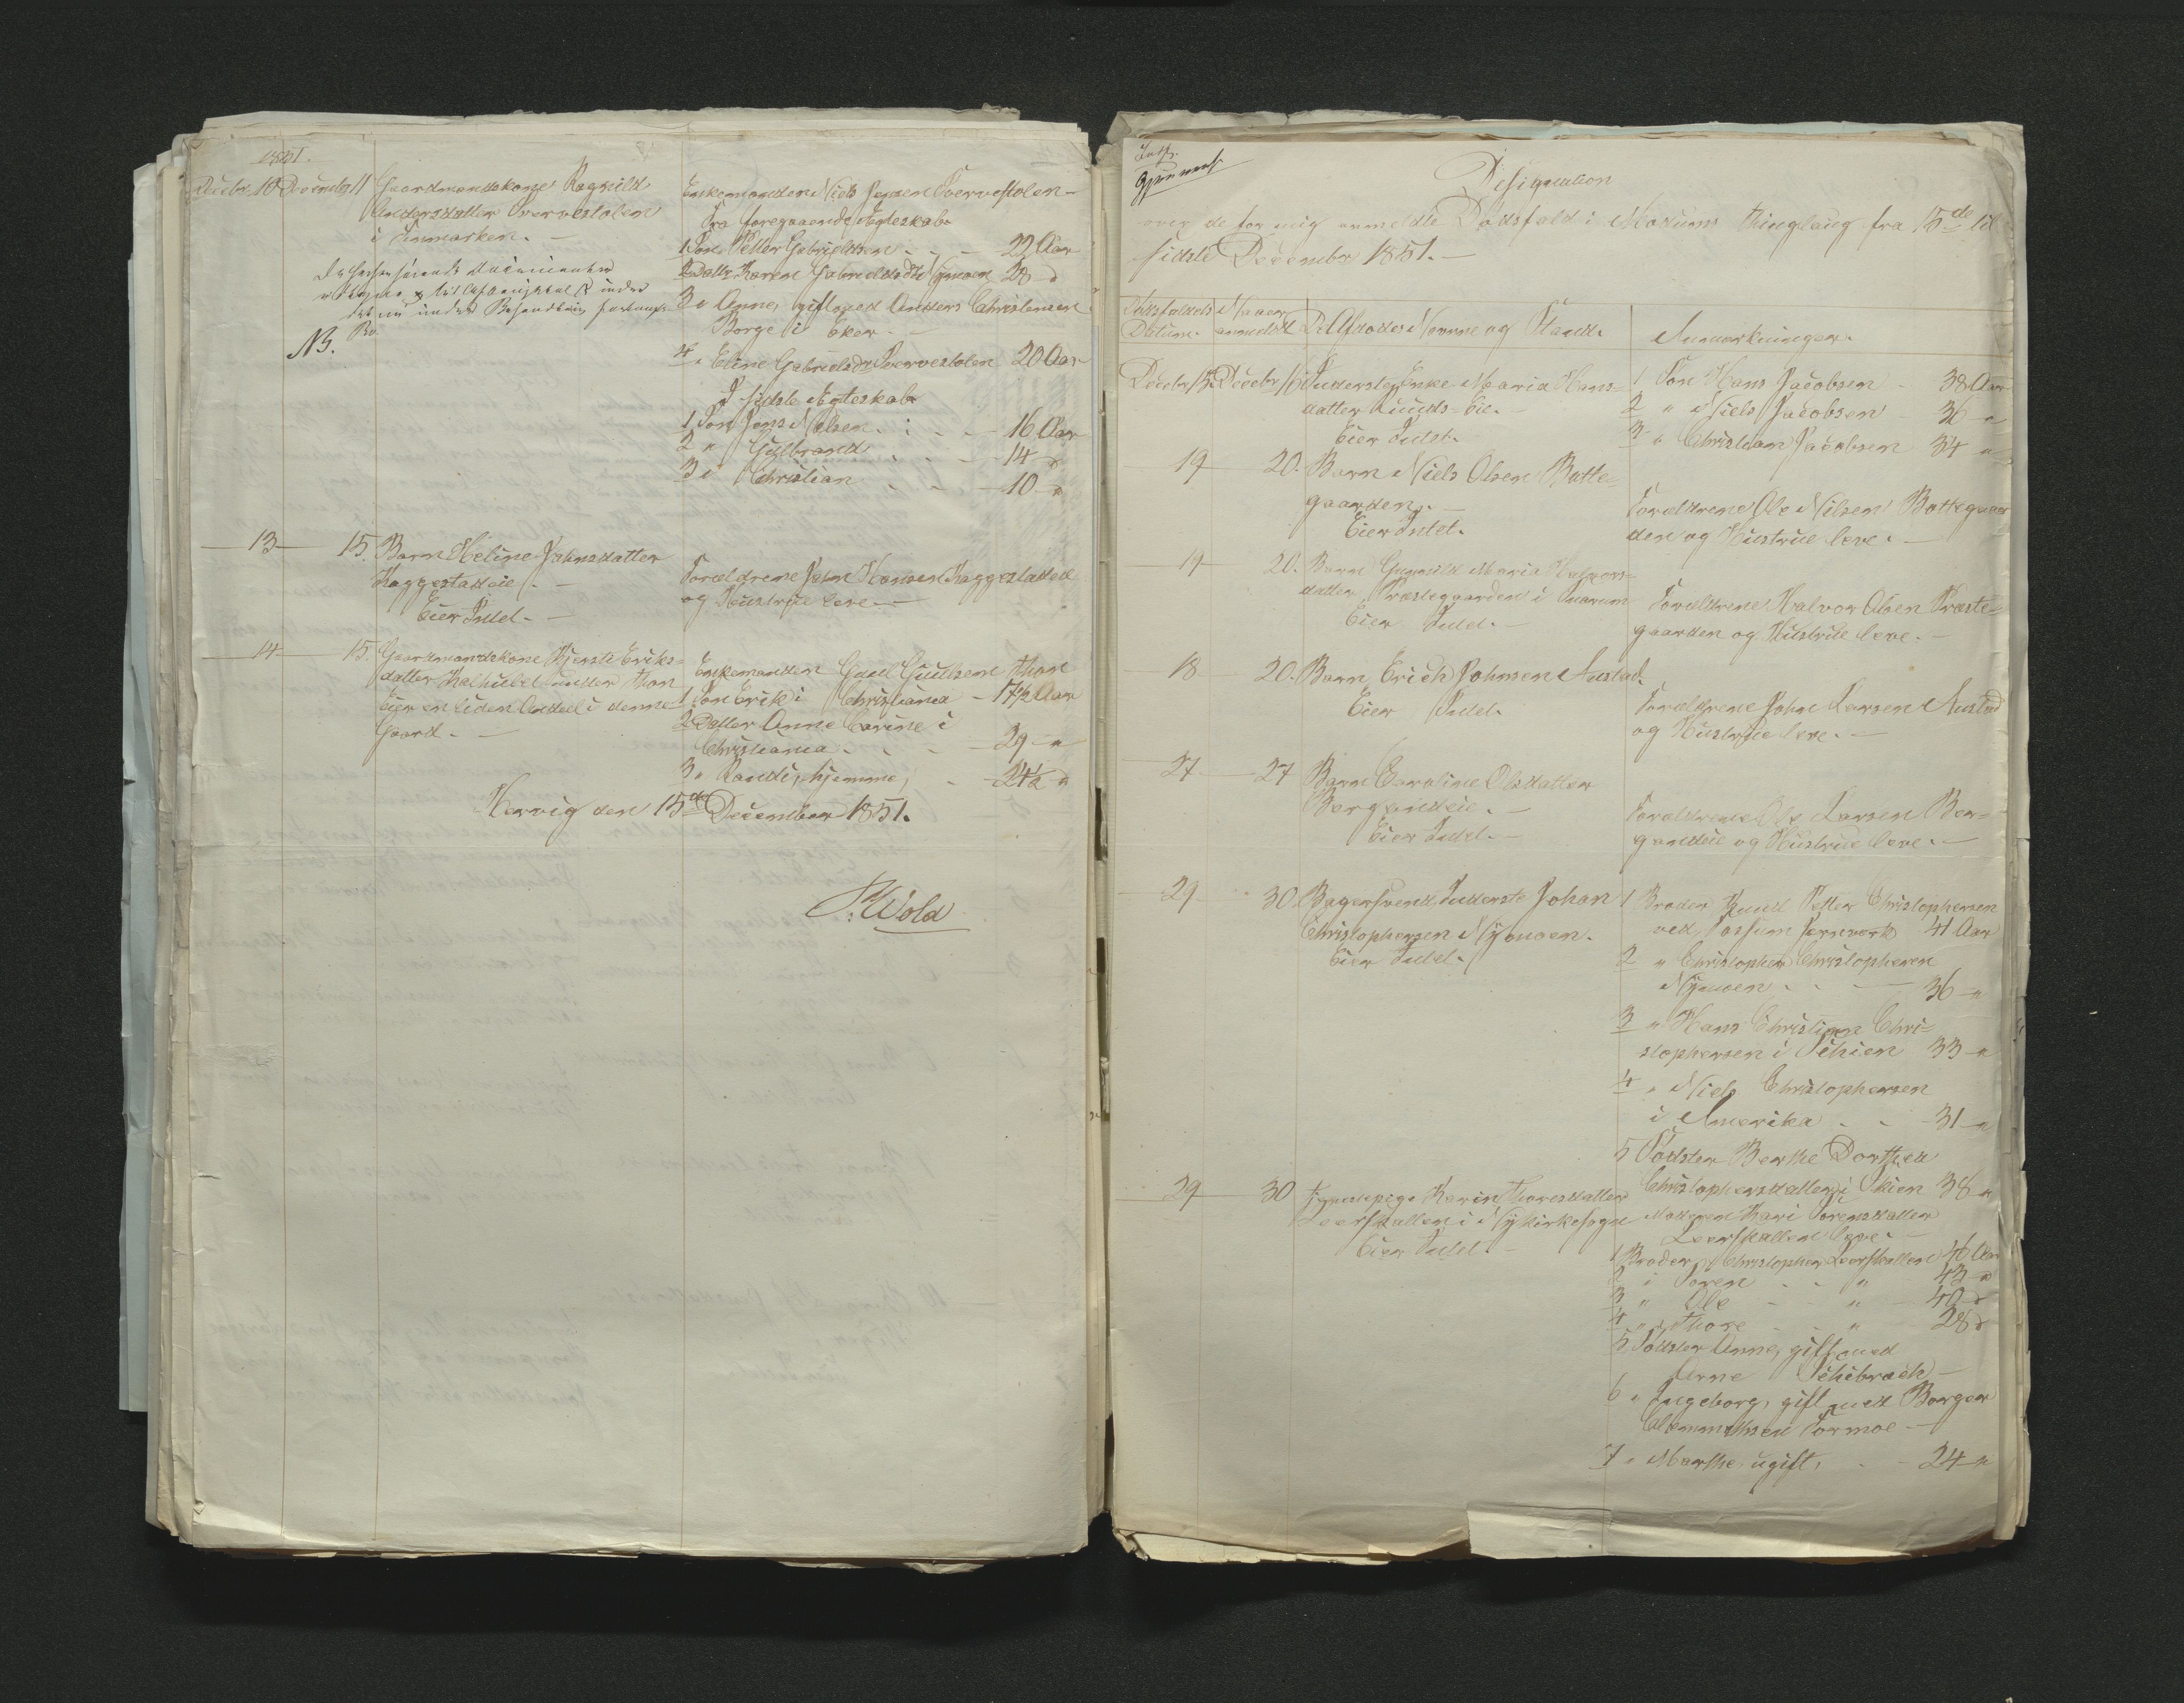 1851.
Decbr. 10 Decembr 11 Gaardmandskone Ragnild
Andersdatter Sværvestolen
i Finmarken. —
NB.
Enkemanden Niels Jensen Sværvestolen —
Fra foregaaende Ægteskab
1 Søn Petter Gabrielsen - - - 22 Aar
2 Datter Karen Gabrielsdtr Nymoen 28 -"
3 " Anne, gift med Anders Christensen
Borge i Eker. —
4 " Eline Gabrielsdr Sværvestolen 20 Aar
I sidste Ægteskab
1 Søn Jens Nilsen. - - - 16 Aar
2 " Gulbrand - - - 14 -"
3 " Christian - - - 10 -"
13 — 15. Barn Eveline Johnsdatter
Haggestadeie. —
Eier Intet. —
Forældrene John Hansen Haggestadeie
og Hustrue leve. —
14 — 15. Gaardmandskone Kjersti Eriks-
datter Kalhubel under Thon
Eier en liden Andeel i denne
Gaard. —
Enkemanden Gunil Guulsen Thon
1 Søn Erik i Christiania - 17½ Aar
2 Datter Anne Carine i
Christiania. - - - 29 -"
3 " Randi, hjemme, - 24½ -"
Hervig den 15de December 1851.
Wold
Designation
over de for mig anmeldte Dødsfald i Modums Thinglaug fra 15de til
sidste December 1851. —
Dødsfaldets Datum.
Naar anmeldt
De Afdødes Navne og Stand.
Anmærkninger.
Decbr 15. Decbr 16 Inderste Enke Maria Hans-
datter Ruuds-Eie. —
Eier Intet.
1 Søn Hans Jacobsen - 38 Aar
2 " Niels Jacobsen 36 -"
3 " Christian Jacobsen 34 -"
19 — 20. Barn Niels Olsen Botte-
gaarden. —
Eier Intet.
Forældrene Ole Nilsen Bottegaar
den og Hustrue leve. —
19 — 20. Barn Gunnild Maria Halvors-
datter Præstegaarden i Snarum
Eier Intet. —
Forældrene Halvor Olsen Præste-
gaarden og Hustrue leve. —
18 — 20. Barn Erich Johnsen Austad.
Eier Intet.
Forældrene John Larsen Austad
og Hustrue leve. —
27 — 27 Barn Caroline Olsdatter
Bergandeie. —
Eier Intet. —
Forældrene Ole Larsen Ber-
gandeie og Hustrue leve. —
29 - 30 Bagersvend Inderste Johan
Christophersen Nymoen.
Eier Intet.
1 Broder Knud Petter Christophersen
ved Fossum Jernverk 41 Aar
2 " Christopher Christophersen
Nymoen - - - 36 -"
3 " Hans Christian Chri-
stophersen i Schien 33 -"
4 " Niels Christophersen
i Amerika - - 31 -"
5 Søster Berthe Dorthea
Christophersdatter i Skien 38 -"
29 — 30 Tjenestepige Karin Thoresdatter
Leerskallen i Nykirkesogn
Eier Intet. —
Moderen Kari Sørensdatter
Leerskallen lever. —
1 Broder Christopher Leerskallen 46 Aar
2 " Søren - - " 43 -"
3 " Ole - - " 40 -"
4 " Thore - - " 28 -"
5 Søster Anne, gift med
Arne Schibræch —
6 " Ingeborg, gift med Borger
Clemmetsen Formoe —
7 " Marthe ugift, - - 24 -"